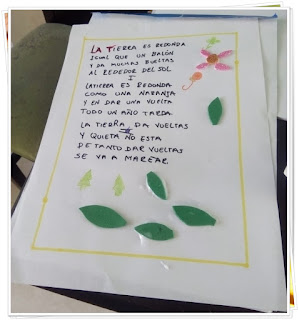 LA TIERRA ES REDONDA
IGUAL QUE UN BALÓN
Y DA MUCHAS BUELTAS
AL REDEDOR DEL SOL
I
LATIERRA ES REDONDA
COMO UNA NARANJA
Y EN DAR UNA VUELTA
TODO UN AÑO TARDA.
LA TIERRA DA VUELTAS
Y QUIETA NO ESTA
DE TANTO DAR VUELTAS
SE VA A MAREAR.